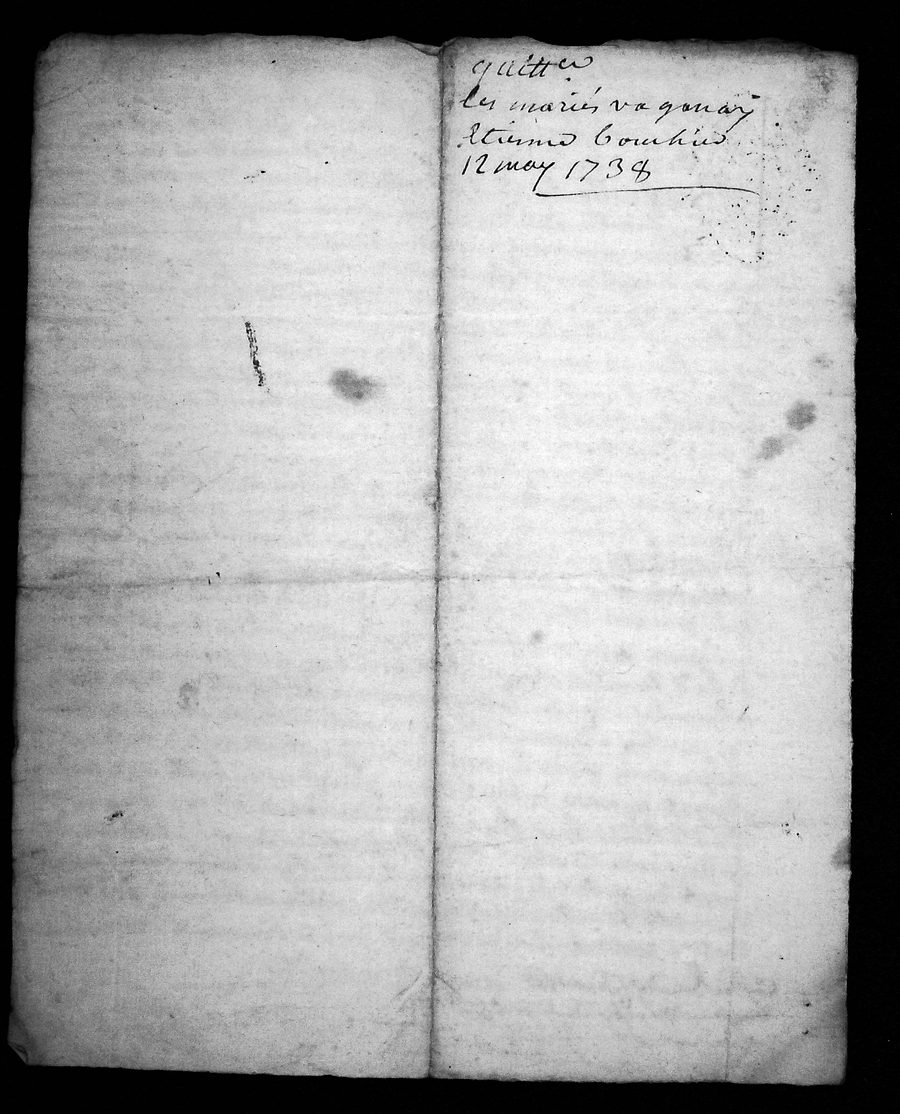 quittce
les mariés vaganay
Etienne Bouchié
12 may 1738